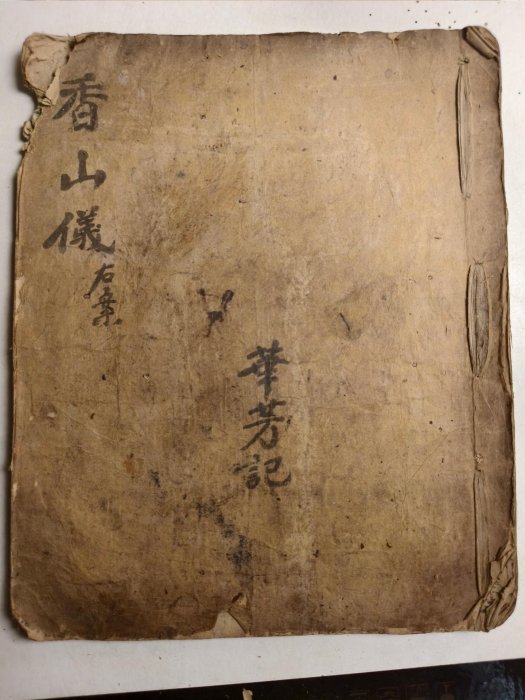 香山儀
右案
華芳記